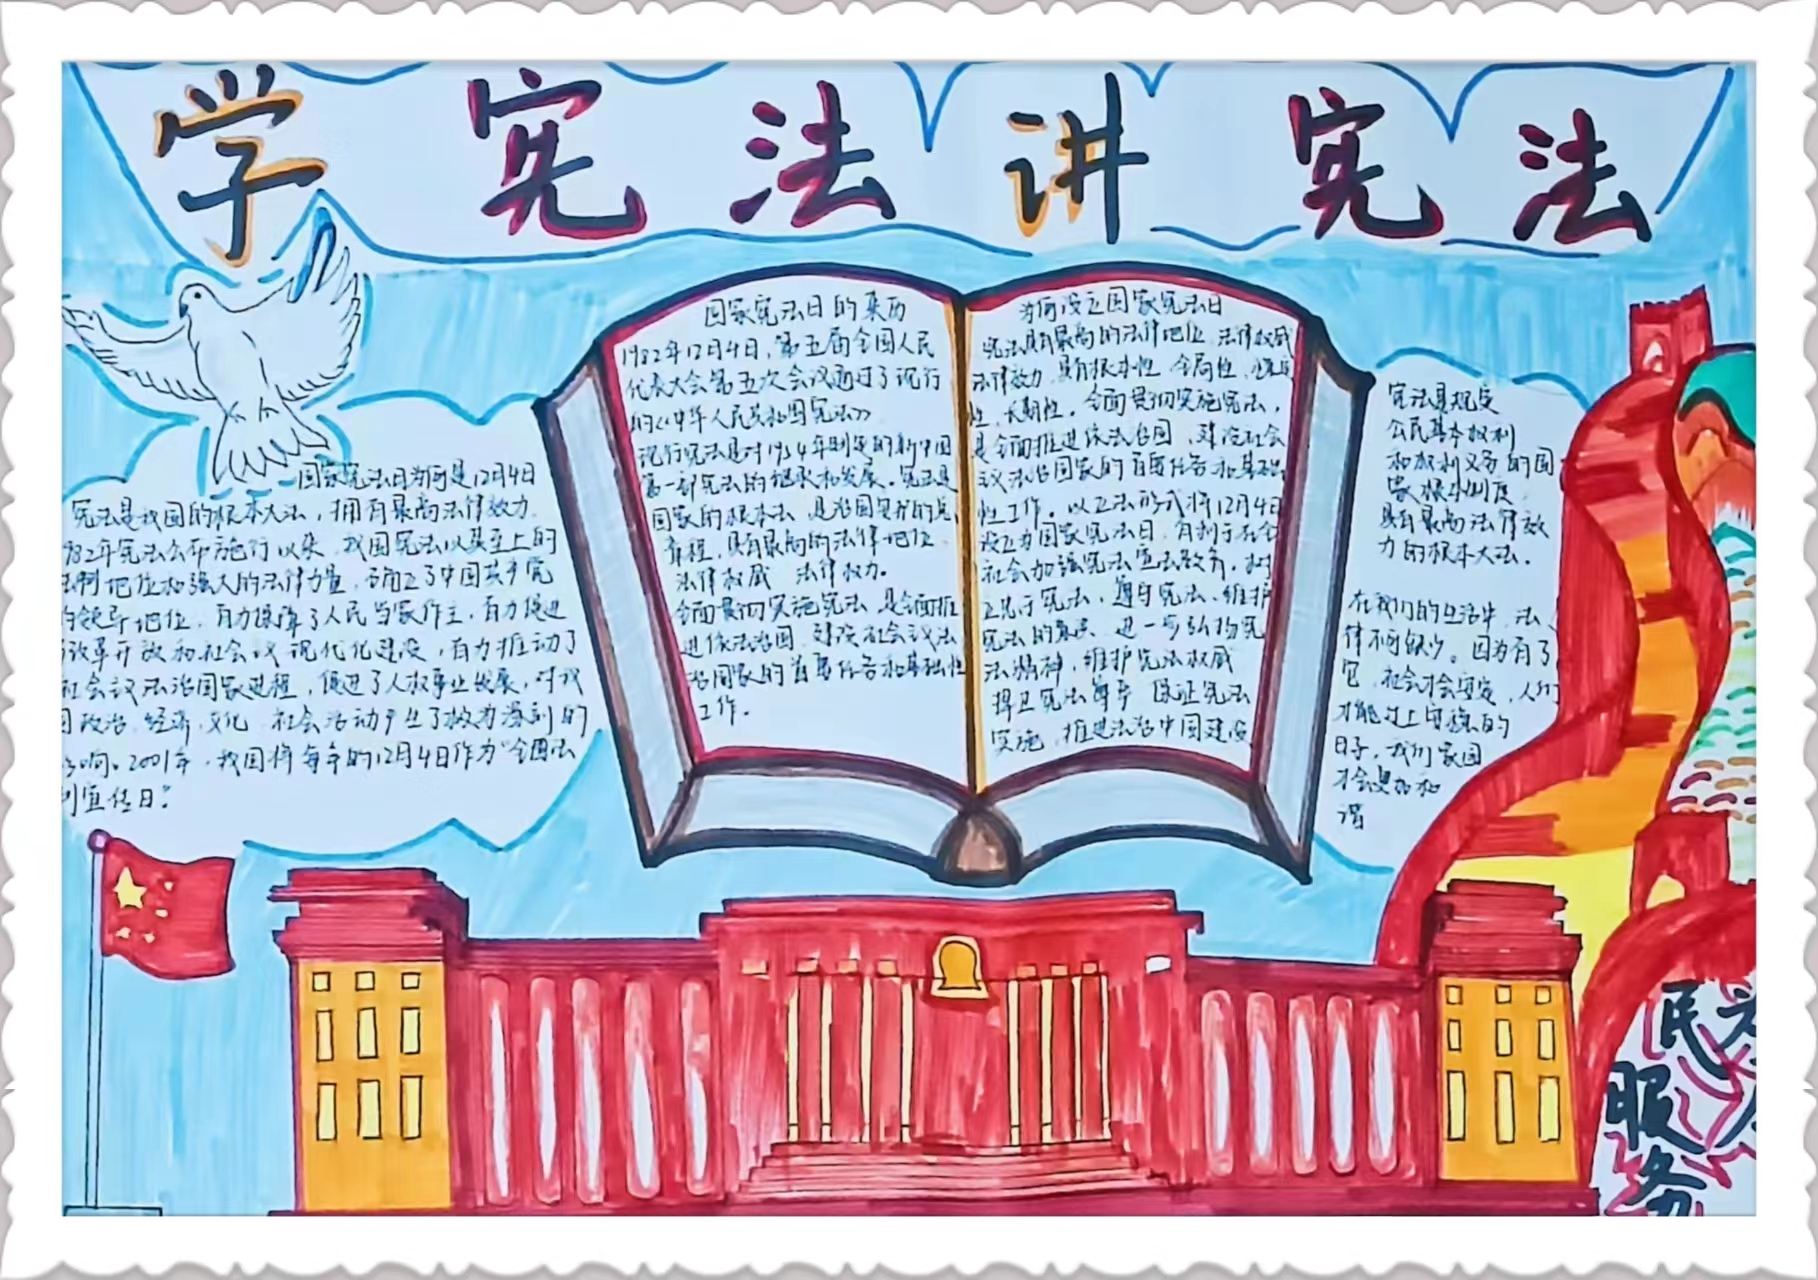 学宪法讲宪法
国家宪法日为何是12月4日
宪法是我国的根本大法，拥有最高法律效力
82年宪法公布施行以来，我国宪法以其至上的
法制地位和强大的法律力量，确立了中国共产党
的领导地位，有力保障了人民当家作主，有力促进
改革开放和社会议现代化建设，有力推动了
社会议法治国家进程，促进了人权事业发展，对我
国政治，经济，文化，社会活动产生了极为深刻的
响。2001年，我国将每年的12月4日作为“全国法
制宣传日”
国家宪法日的来历
1982年12月4日，第五届全国人民
代表大会第五次会议通过了现行
的《中华人民共和国宪法》
现行宪法是对1954年制定的新中国
第一部宪法的继承和发展。宪法是
国家的根本法，是治国安邦的总
章程，具有最高的法律地位
法律权威 法律权力。
全面贯彻实施宪法，是全面推
进依法治国，建设社会议法
治国家的首要任务和基础性
工作。
为何设立国家宪法日
宪法具有最高的法律地位，法律权威
法律效力，具有根本性 全局性，稳定
性，长期性。全面贯彻实施宪法，
是全面推进依法治国，建设社会
议法治国家的首要任务和基础
性工作。以立法形式将12月4日
设立为国家宪法日，有利于在全
社会加强宪法宣法教育，树
立忠于宪法，遵守宪法、维护
宪法的意识，进一步弘扬宪
法精神，维护宪法权威
捍卫宪法尊严 保证宪法
实施，推进法治中国建设
宪法是规定
公民基本权利
和权利义务的国
家根本制度
具有最高法律效
力的根本大法.
在我们的生活中，法
律不可缺少。因为有了
它，社会才会安定，人们
才能过上安稳的
日子，我们家园
才会更加和
谐
民
服
务